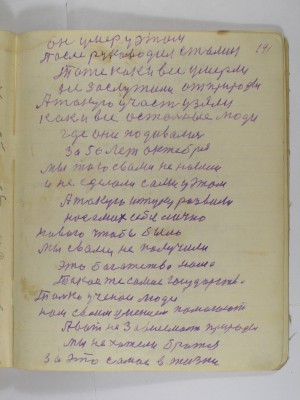 он умер у этом 191
После руководил сталин
Тоже как и все умерли
не заслужили от природы
А такую участ узяли
как и все остальные люди
где они подивалися
За 50 лет октября
мы того свами не нашли
и не сделали сами у этом
А такую штуку развили
носом их себе лично
нового чтобы было
мы свами не получили
Это богатство наше
Такое же самое государств.
Только ученые люди
нам своим умением помогают
А вот не зависемость природе
мы не хотели братся
за это самое в жизни